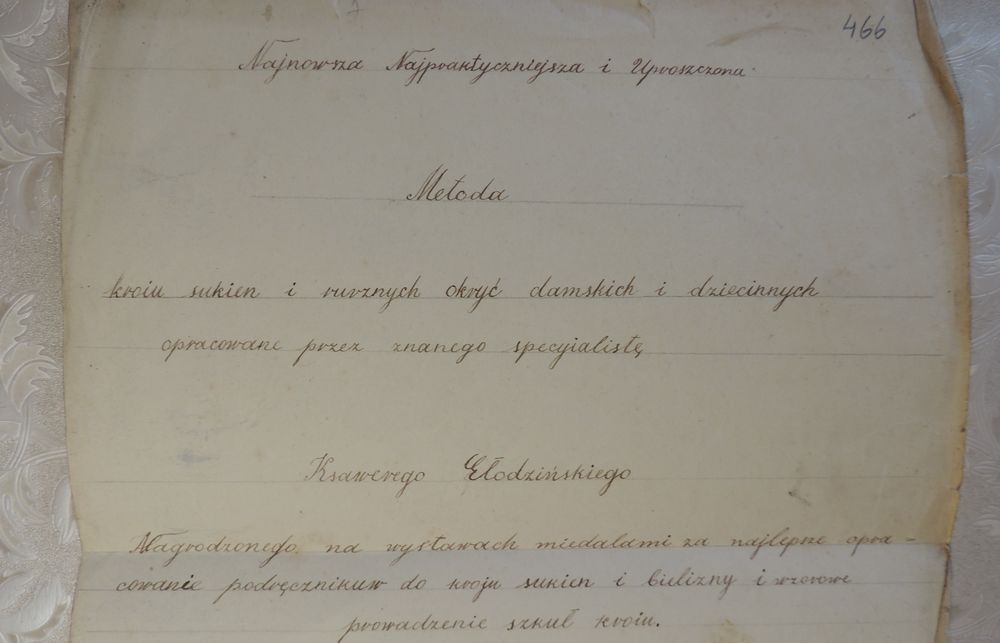 466
Najnowsza Najpraktyczniejsza i Uproszczona
Metoda
kroiu sukien i rurznych okryć damskich i dziecinnych
opracowane przez znanego specyialistę
Ksawerego Głodzińskiego
Nagrodzonego na wystawach miedalami za najlepsze opra-
cowanie podręcznikuw do kroju sukien i bielizny i wzorowe
prowadzenie szkuł kroiu.